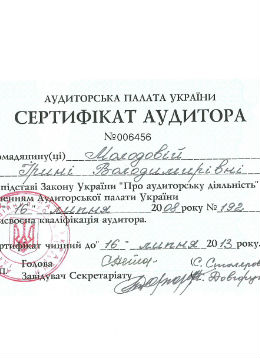 АУДИТОРСЬКА ПАЛАТА УКРАЇНИ
СЕРТИФІКАТ АУДИТОРА
№006456
омадянину(ці) Молодовій
Ірині Володимирівні
підставі Закону України "Про аудиторську діяльність"
енням Аудиторської палати України
16 липня 2008 року № 192
исвоєна кваліфікація аудитора.
ртифікат чинний до 16 липня 2013 року.
Голова
Завідувач Секретаріату